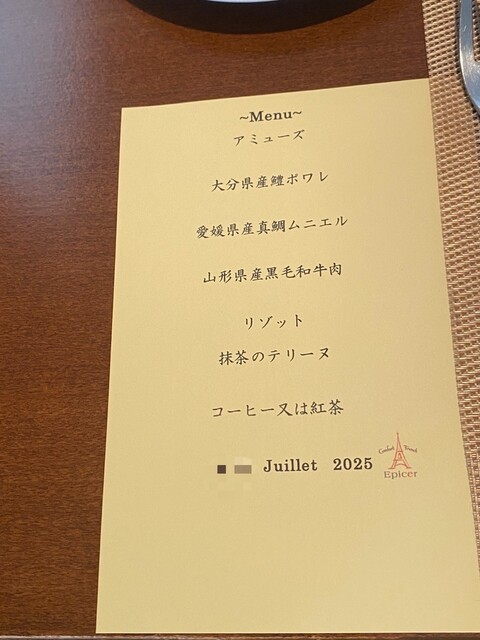 ~Menu~
アミューズ
大分県産鱧ポワレ
愛媛県産真鯛ムニエル
山形県産黒毛和牛肉
リゾット
抹茶のテリーヌ
コーヒー又は紅茶
Juillet 2025
Epicer